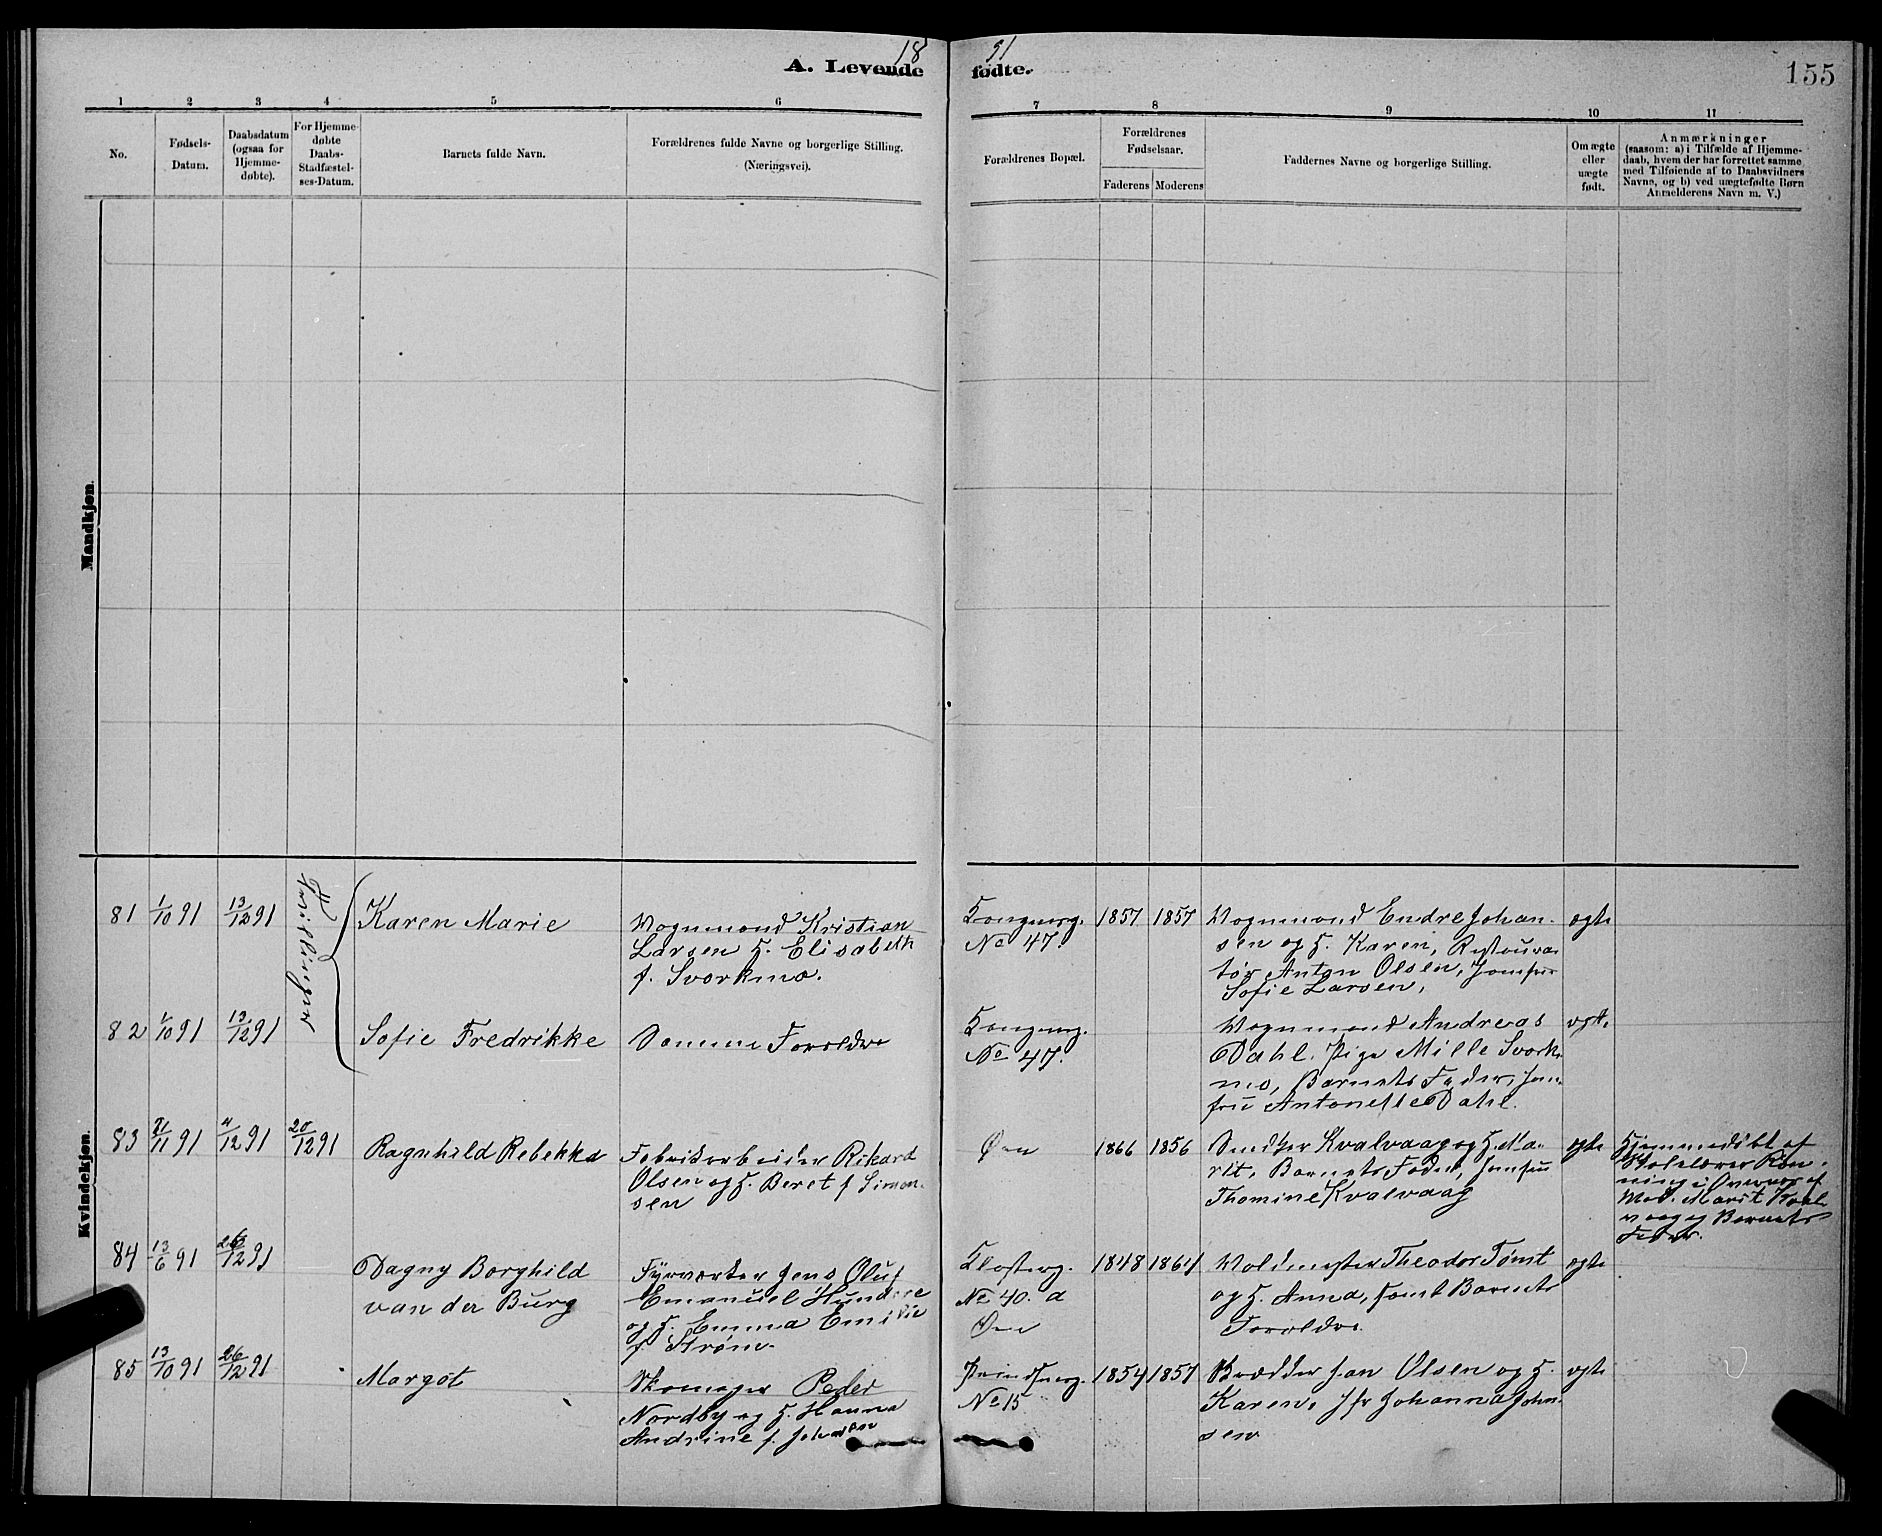 18 91
A. Levende fødte.
155
1 2 3 4 5 6 7 8 9 10 11
No.
Fødsels-
Datum.
Daabsdatum
(ogsaa for
Hjemme-
døbte).
For Hjemme-
døbte
Daabs-
Stadfæstel-
ses-Datum.
Barnets fulde Navn.
Forældrenes fulde Navne og borgerlige Stilling.
(Næringsvei).
Forældrenes Bopæl.
Forældrenes
Fødselsaar.
Faderens Moderens
Faddernes Navne og borgerlige Stilling.
Om ægte
eller
uægte
født.
Anmærkninger
(saasom: a) i Tilfælde af Hjemme-
daab, hvem der har forrettet samme
med Tilføiende af to Daabsvidners
Navne, og b) ved uægtefødte Børn
Anmelderens Navn m. V.)
Mandkjøn.
Kvindekjøn.
81
1/10 91
13/12 91
Tvillinger
Karen Marie
Vognmand Kristian
Larsen H. Elisabeth
f. Svorkmo.
Kongensg.
No 47.
1857
1857
Vognmand Endre Johan-
sen og H. Karen, Restaura-
tør Anton Olsen, Jomfru
Sofie Larsen,
ægte
82
1/10 91
13/12 91
Sofie Fredrikke
Samme Forældre
Kongensg.
No 47.
Vognmand Andreas
Dahl. Pige Mille Svork-
mo, Barnets Fader, Jom-
fru Antonette Dahl.
ægte
83
/11 91
4/12 91
20/12 91
Ragnhild Rebekka
Fabrikarbeider Rikard
Olsen og H. Beret f Simon-
sen
Øen
1866
1856
Snedker Kvalvaag og H. Ma-
rit, Barnets Fader, Jomfru
Thomine Kvalvaag
ægte
Hjemmedøbt af
Skolelærer Røn-
ning i Overvær af
Mad. Marit Kval-
vaag og Barnets
Fader.
84
13/6 91
26/12 91
Dagny Borghild
van der Burg
Fyrværker Jens Oluf
Emanuel Hundere
og H. Emma Emilie
f. Strøm.
Klosterg.
No 40. a
Øen
1848
1864
Theodor Tømt
og H. Anna, samt Barnets
Forældre.
ægte
85
13/10 91
26/12 91
Margot
Skomager Peder
Nordby og H. Hanna
Andrine f. Johansen
Prindsensg.
No 15
1854
1857
Jon Olsen og H.
Karen, Jfr Johanna John-
sen
ægte